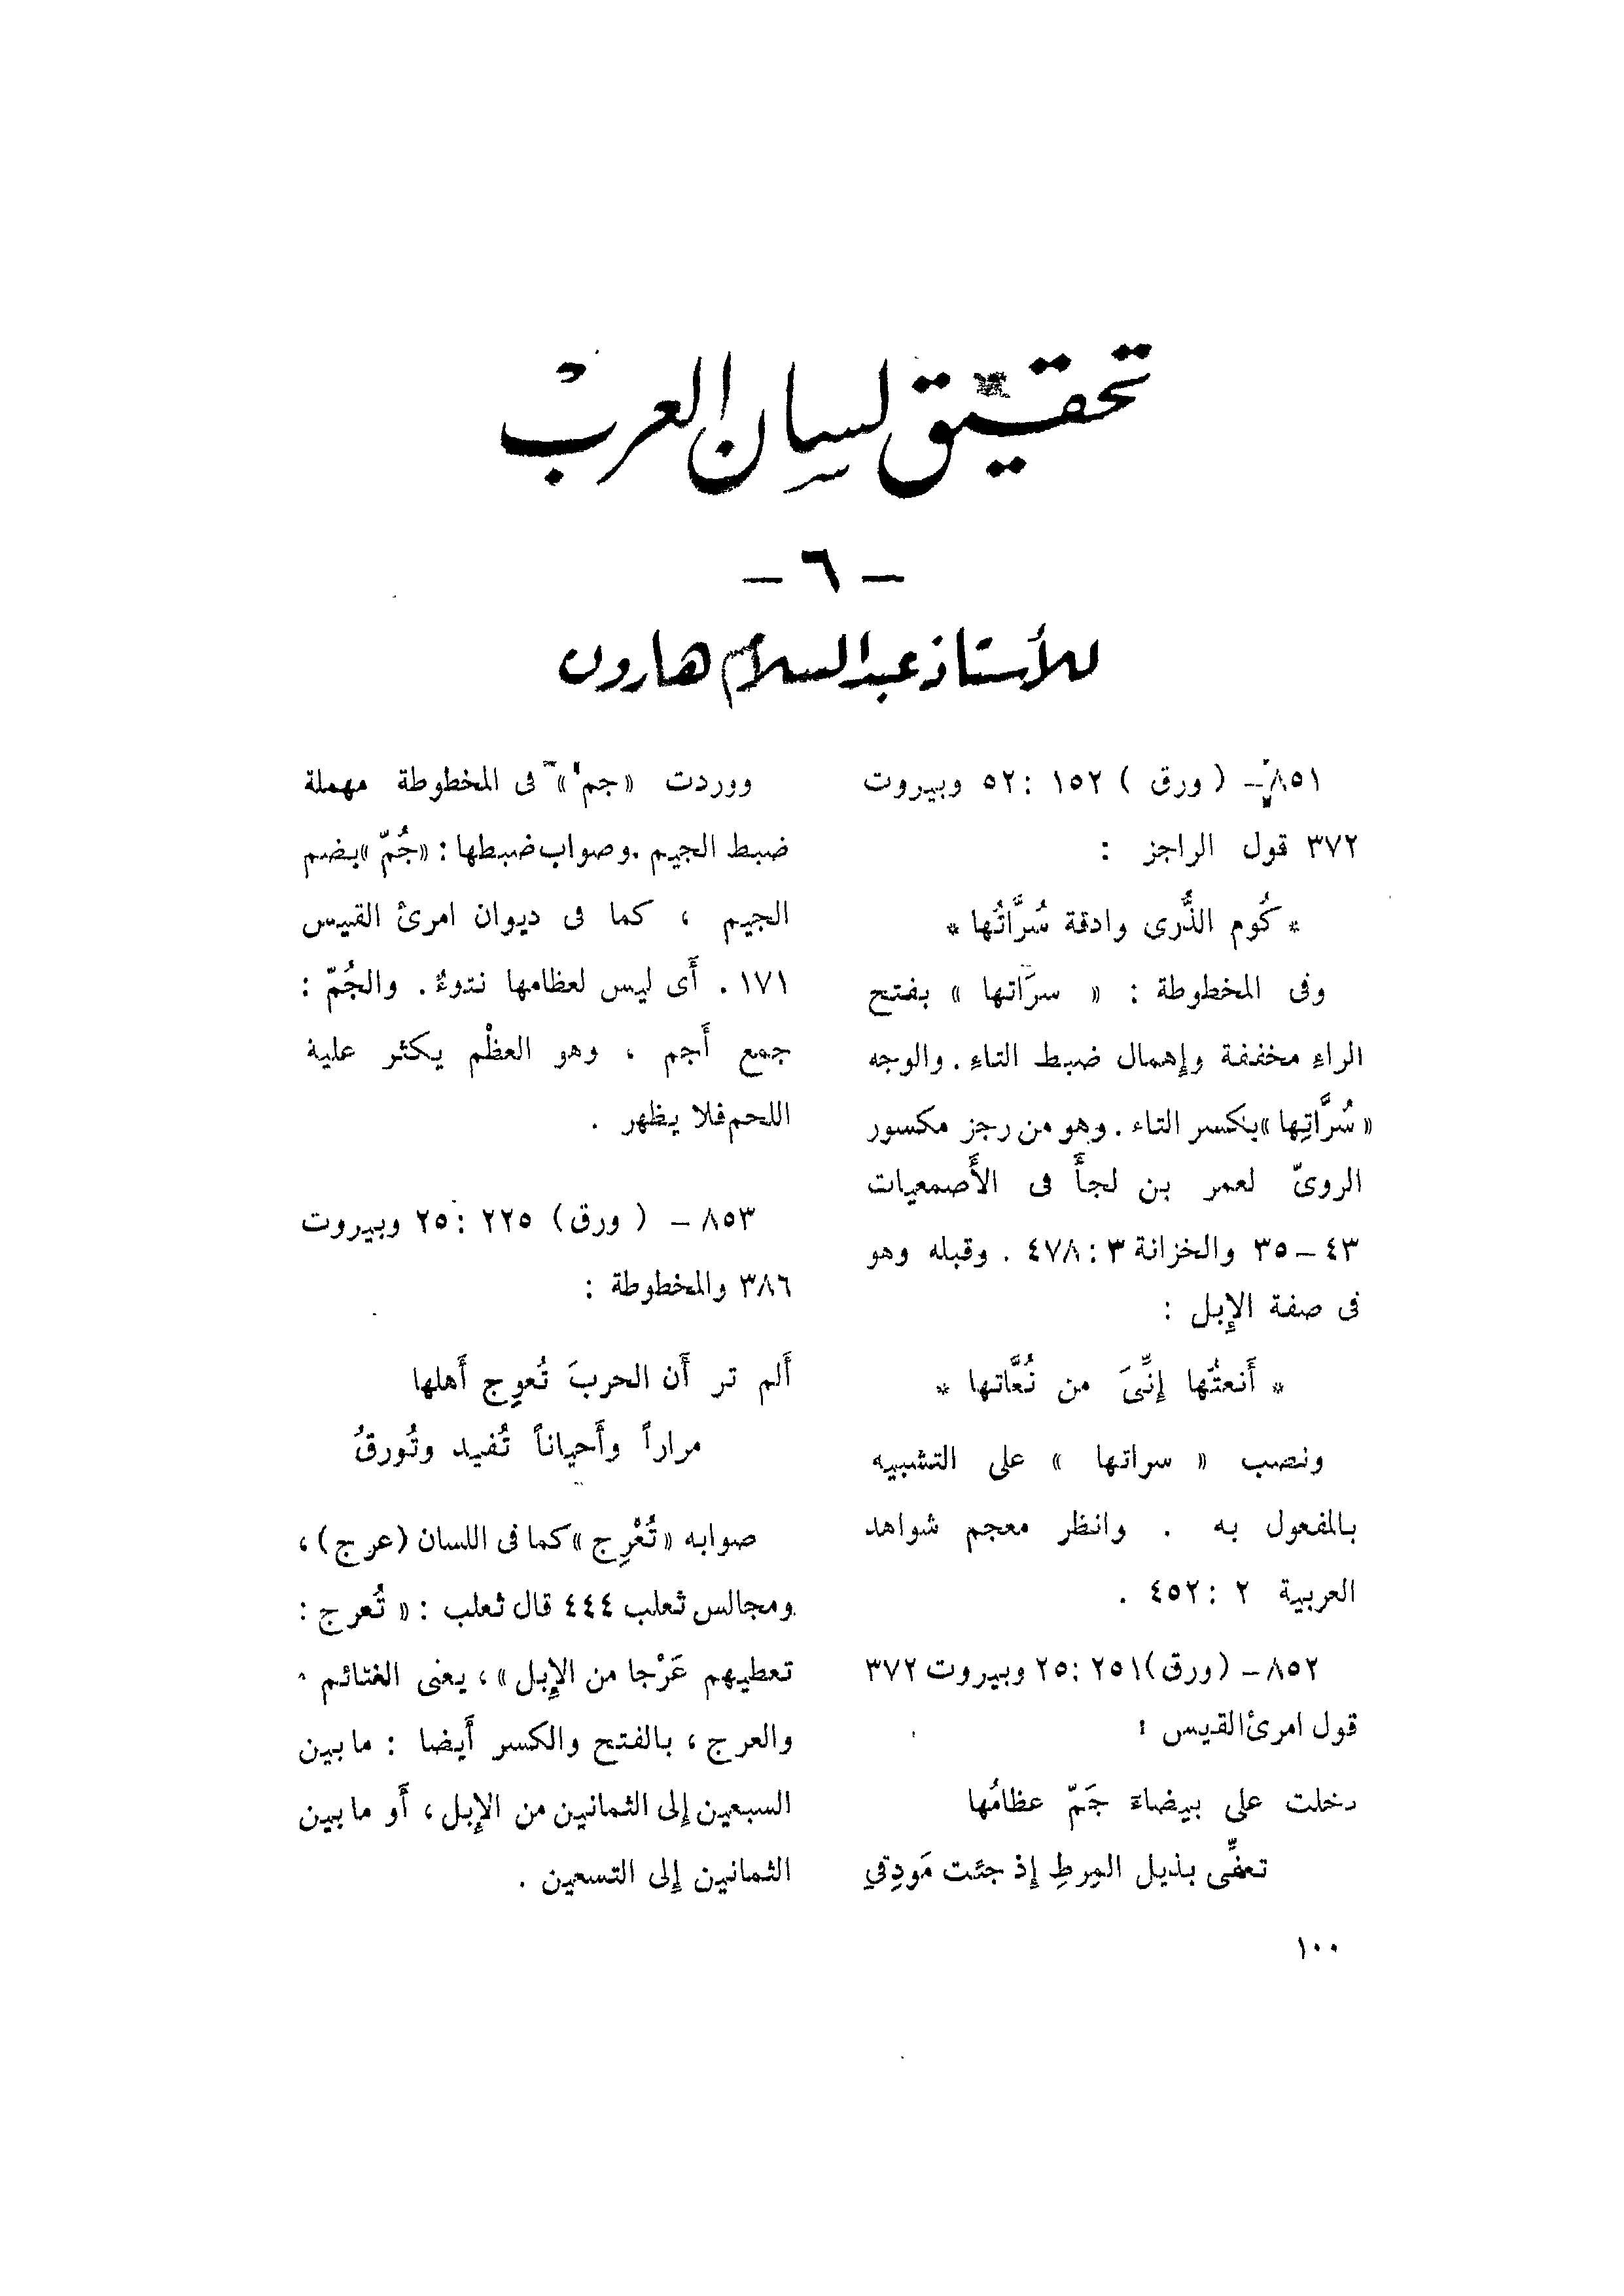 تحقيق لسان العرب
– ٦ –
للأستاذ عبد السلام هارون
٨٥١– ( ورق ) ١٥٢ : ٥٢ وبيروت
٣٧٢ قول الراجز :
* كُوم الذُّرى وادقة سُرَّاتُها *
وفى المخطوطة : « سرَاتها » بفتح
الراءِ مخففة وإهمال ضبط التاءِ . والوجه
« سُرَّاتِها » بكسر التاء . وهو من رجز مكسور
الروىّ لعمر بن لجأَ فى الأَصمعيات
٣٥ – ٤٣ والخزانة ٣ : ٤٧٨ . وقبله وهو
فى صفة الإِبل :
* أَنعتُها إنِّىَ من نُعَّاتها *
ونصب « سراتها » على التشبيه
بالمفعول به . وانظر معجم شواهد
العربية ٢ : ٤٥٢ .
٨٥٢– (ورق) ٢٥١ : ٢٥ وبيروت ٣٧٢
قول امرئ القيس :
دخلت على بيضاءَ جَمّ عظامُها
تعفِّى بذيل المِرطِ إذ جئت مَودِقِ
١٠٠
ووردت « جم » فى المخطوطة مهملة
ضبط الجيم . وصواب ضبطها : « جُمّ » بضم
الجيم ، كما فى ديوان امرئ القيس
١٧١ . أَى ليس لعظامها نتوءٌ . والجُمّ :
جمع أَجم ، وهو العظْم يكثر عليه
اللحم فلا يظهر .
٨٥٣ – ( ورق ) ٢٢٥ : ٢٥ وبيروت
٣٨٦ والمخطوطة :
أَلم تر أَن الحربَ تُعوِج أَهلها
مراراً وأَحياناً تُفيد وتُورقُ
صوابه « تُعْرِج » كما فى اللسان (عرج) ،
ومجالس ثعلب ٤٤٤ قال ثعلب : « تُعرج :
تعطيهم عَرْجا من الإِبل » ، يعنى الغنائم
والعرج ، بالفتح والكسر أَيضا : ما بين
السبعين إلى الثمانين من الإِبل ، أَو ما بين
الثمانين إلى التسعين .